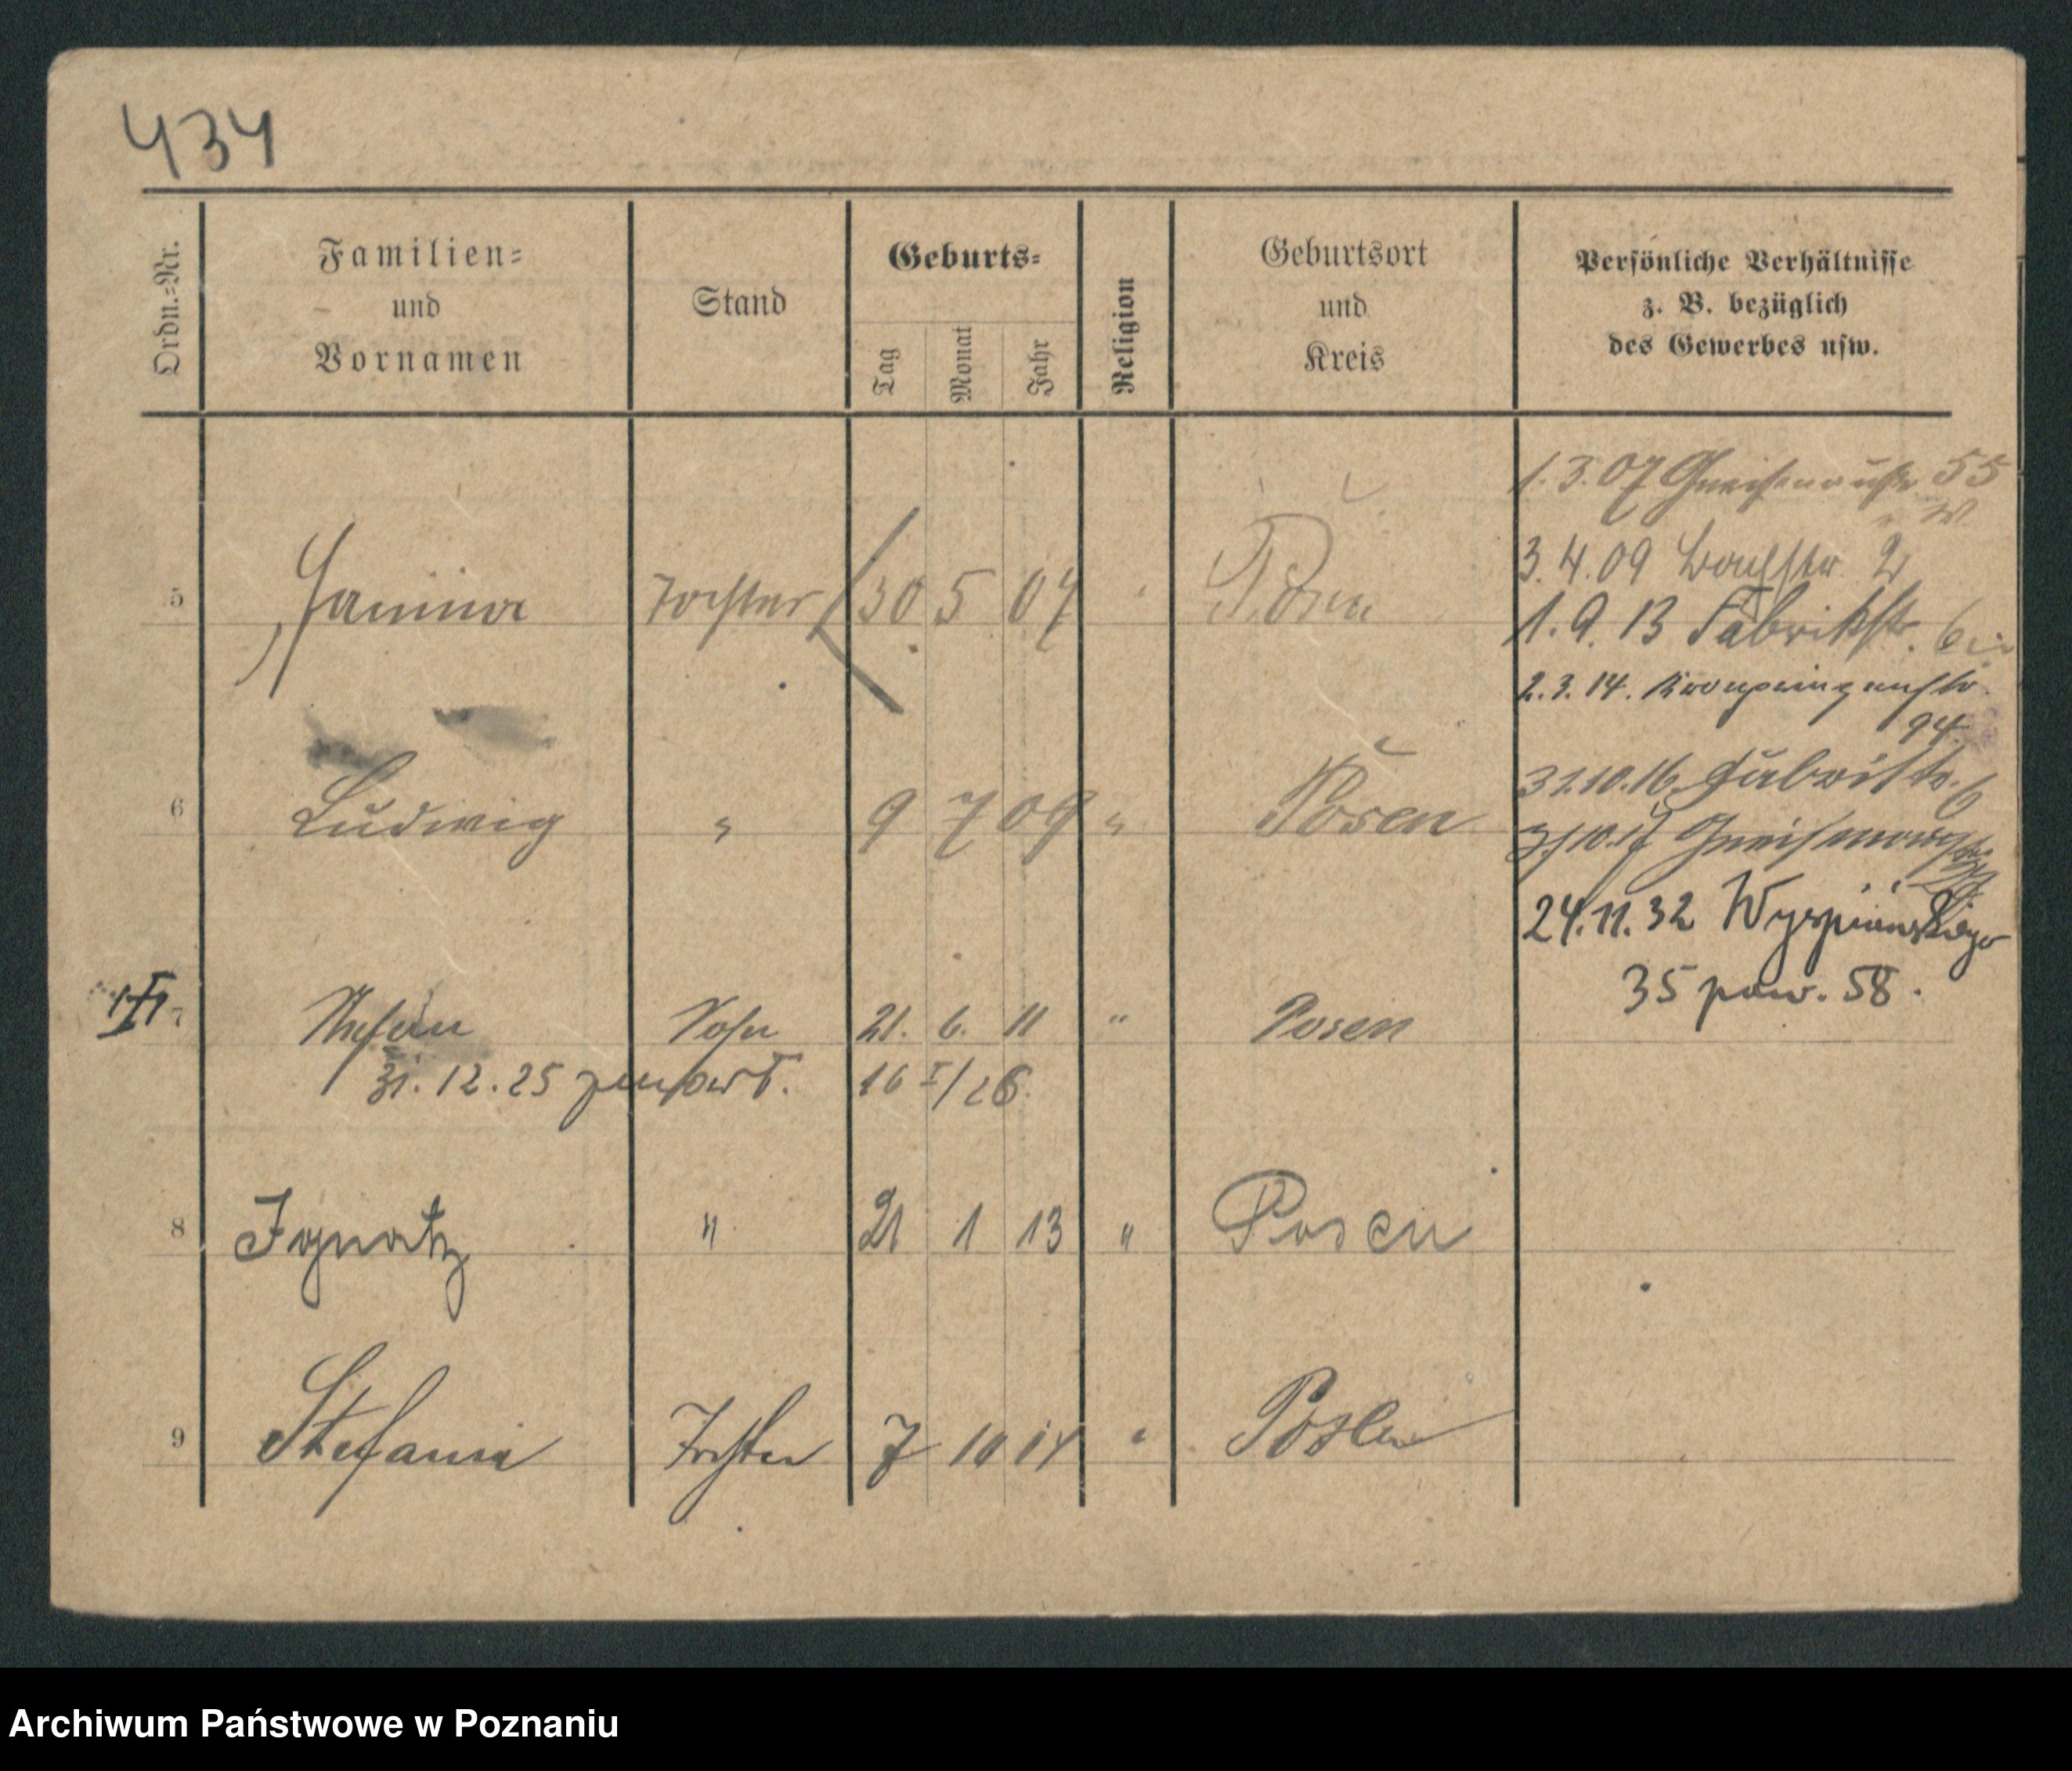 434
Ordn.=Nr.
Familien=
und
Vornamen
Stand
Geburts=
Tag
Monat
Jahr
Religion
Geburtsort
und
Kreis
Persönliche Verhältnisse
z. B. bezüglich
des Gewerbes usw.
1.3.07 Gneisenaustr. 55
3.4.09 Bachstr. 2
5 Janina Tochter 30 5 07 " Posen
1.9.13 Fabrikstr. 6
2.3.14. Kronprinzenstr.
94.
31.10.16. Fabrikstr. 6
6 Ludwig " 9 7 09 " Posen
Gneisenaustr.
24.11.32 Wyspiańskiego
35 pow. 58.
7 Stefan Sohn 21. 6. 11 " Posen
31.12.25 zm 16 I/26.
8 Ignatz " 21 1 13 " Posen
9 Stefania Tochter 7 10 14 " Posen
Archiwum Państwowe w Poznaniu